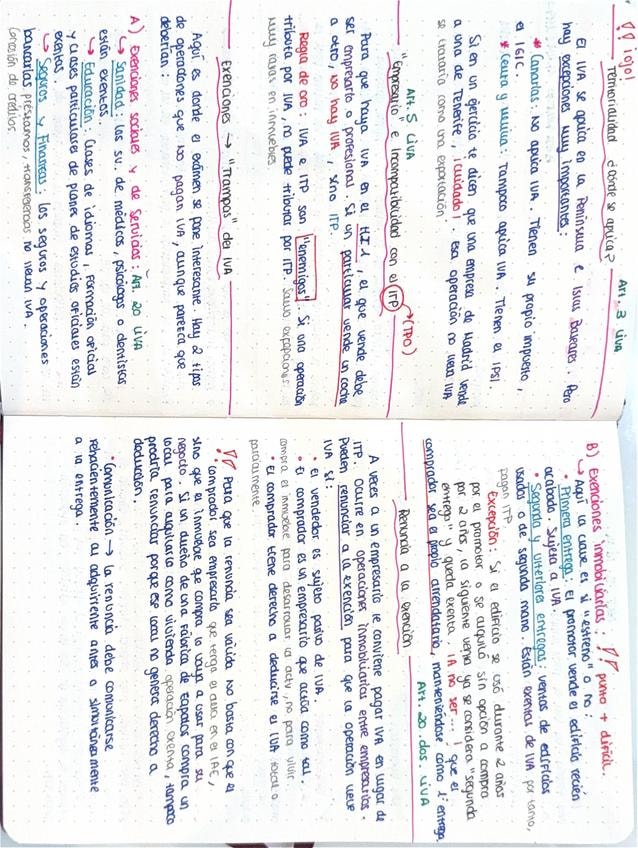 ¡¡ ¡ojo!
Territorialidad ¿Dónde se aplica? Art. 3 LIVA
El IVA se aplica en la Península e Islas Baleares. Pero
hay excepciones muy importantes:
* Canarias: No aplica IVA. Tienen su propio impuesto,
el IGIC.
* Ceuta y Melilla: Tampoco aplica IVA. Tienen el IPSI.
Si en un ejercicio te dicen que una empresa de Madrid vende
a una de Tenerife, ¡cuidado! Esa operación no lleva IVA
se trataría como una exportación.
Art. 5 LIVA
"Empresario" e Incompatibilidad con el ITP → (TPO)
Para que haya IVA en el el que vende debe
ser empresario o profesional. Si un particular vende un coche
a otro, no hay IVA, sino ITP.
Regla de oro: IVA e ITP son "enemigos". Si una operación
tributa por IVA, no puede tributar por ITP. Salvo excepciones
muy raras en inmuebles.
Exenciones → "Trampas" del IVA
Aquí es donde el examen se pone interesante. Hay 2 tipos
de operaciones que no pagan IVA, aunque parezca que
deberían:
A) Exenciones sociales y de servicios: Art. 20 LIVA
↳ Sanidad: los sv. de médicos, psicólogos o dentistas
están exentos.
↳ Educación: Clases de idiomas, formación oficial
y clases particulares de planes de estudios oficiales están
exentas.
↳ Seguros y Finanzas: los seguros y operaciones
bancarias préstamos, transferencias no llevan IVA.
Concesión de créditos.
B) Exenciones inmobiliarias: ¡¡ punto + difícil.
↳ Aquí la clave es si "estreno" o no:
• Primera entrega: El promotor vende el edificio recién
acabado. Sujeta a IVA.
• Segunda y ulteriores entregas: ventas de edificios
usados o de segunda mano. Están exentas de IVA por tanto,
pagan ITP
Excepción: Si el edificio se usó durante 2 años
por el promotor o se alquiló sin opción a compra
por 2 años, la siguiente venta ya se considera "segunda
entrega" y queda exenta. ¡A no ser...! que el
comprador sea el propio arrendatario, manteniéndose como 1ª entrega.
Renuncia a la exención Art. 20. dos. LIVA
A veces a un empresario le conviene pagar IVA en lugar de
ITP. Ocurre en operaciones inmobiliarias entre empresarios.
Pueden renunciar a la exención para que la operación lleve
IVA si:
• El vendedor es sujeto pasivo de IVA.
• El comprador es un empresario que actúa como tal.
compra el inmueble para desarrollar la activ, no para vivir.
• El comprador tiene derecho a deducirse el IVA total o
parcialmente.
¡¡ Para que la renuncia sea válida no basta con que el
comprador sea empresario que tenga el alta en el IAE,
sino que el inmueble que compra lo vaya a usar para su
negocio. Si un dueño de una fábrica de zapatos compra un
local para alquilarlo como vivienda operación exenta, tampoco
podría renunciar porque ese local no genera derecho a
deducción.
• Comunicación → la renuncia debe comunicarse
fehacientemente al adquirente antes o simultáneamente
a la entrega.